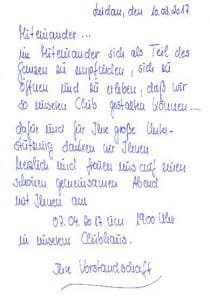 Lindau, den 10.03.2017
Miteinander ...
im Miteinander sich als Teil des
Ganzen zu empfinden, sich zu
öffnen und zu erleben, daß wir
so unseren Club gestalten können ....
dafür und für Ihre große Unter-
stützung danken wir Ihnen
herzlich und freuen uns auf einen
schönen gemeinsamen Abend
mit Ihnen am
07.04.2017 um 19.00 Uhr
in unserem Clubhaus.
Ihre Vorstandschaft